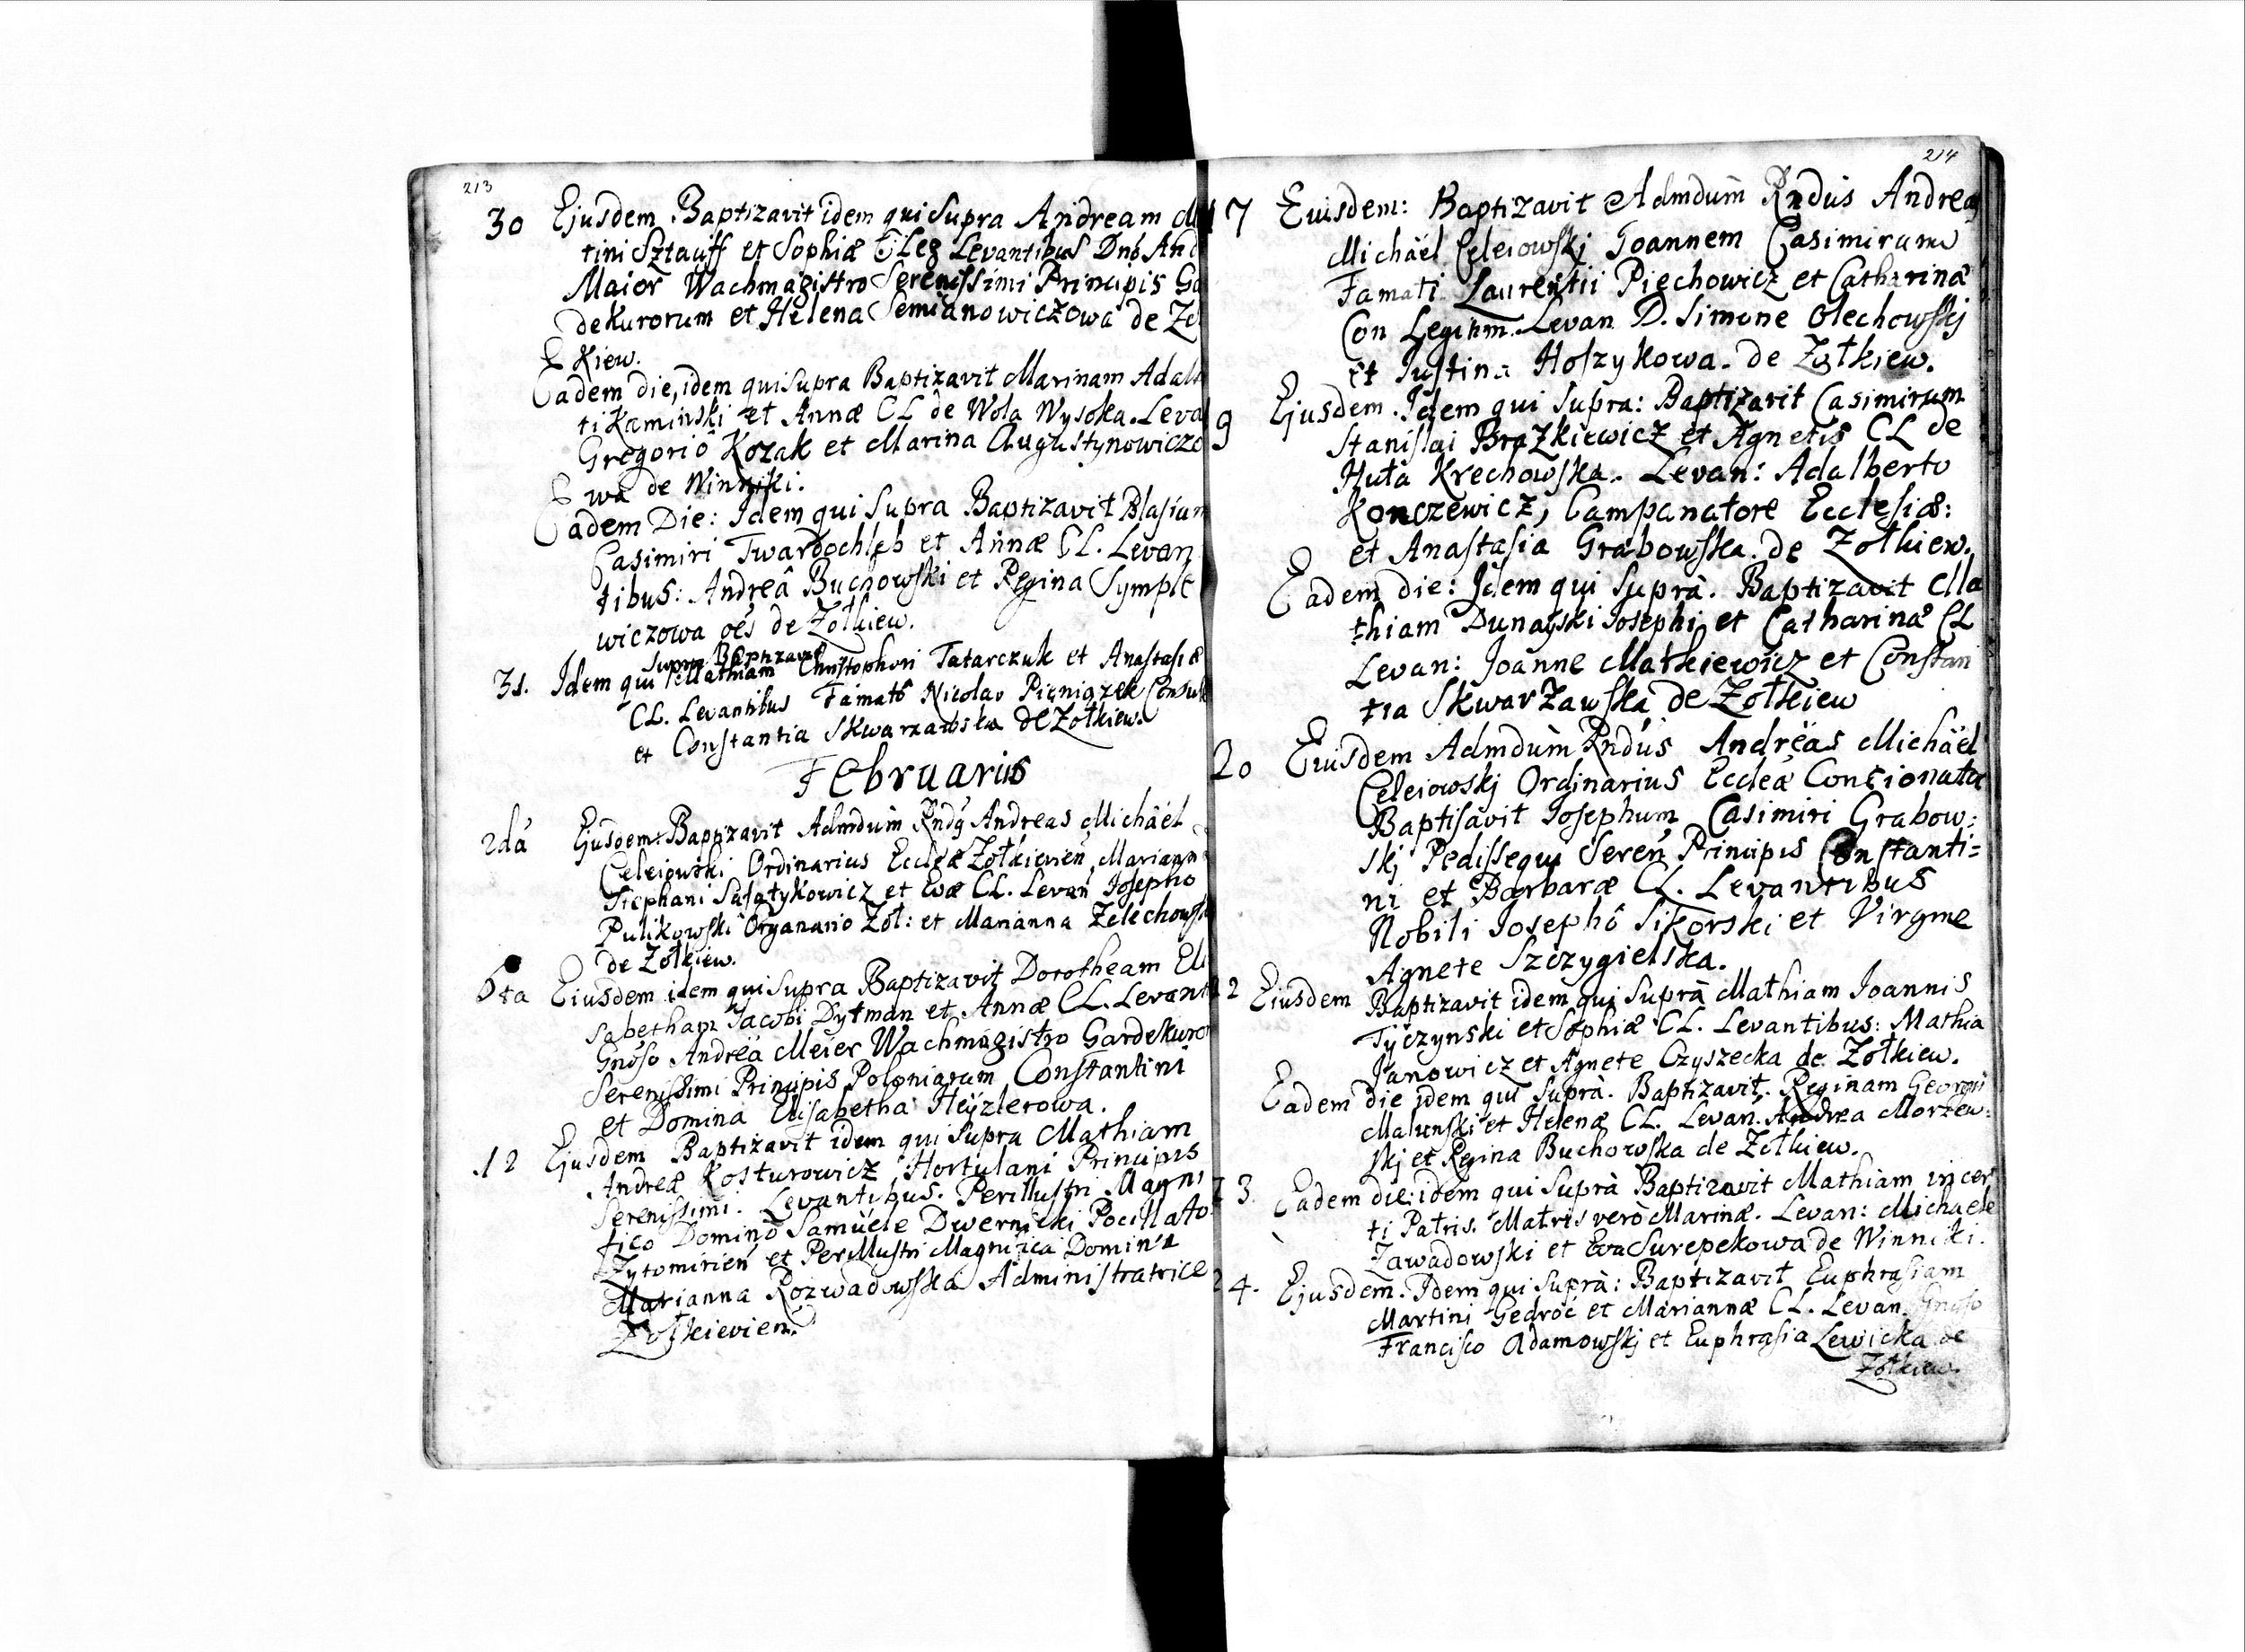 213
30 Ejusdem Baptizavit idem qui Supra Andream M
tini Sztauff et Sophiæ C Leg Levantibus Dnô And
Maior Wachmagistro Serenissimi Principis Ga
dekurorum et Helena Semianowiczowa de Zo
Kiew.
Eadem die, idem qui Supra Baptizavit Marinam Adalb
ti Kaminski et Annæ CL de Wola Wysoka. Leva
Gregoriô Kozak et Marina Augustynowiczo
wa de Winniki.
Eadem Die: Idem qui Supra Baptizavit Blasium
Casimiri Twardochleb et Annæ CL. Levan
tibus: Andreâ Buchowski et Regina Symple
wiczowa oes de Zołkiew.
Supra Baptizavit
31. Idem qui Mathiam Christophori Tatarczuk et Anastasiæ
CL. Levantibus Famatô Nicolao Pieniązek Consul
et Constantia Skwarzawska de Zołkiew.
Februarius
2da Ejusdem: Baptizavit Admdum Rndg Andreas Michäel
Celeiowski Ordinarius Eccleæ Zołkievien Mariann
Stephani Sałatykowicz et Evæ CL. Levan Josepho
Pulikowski Organario Zoł: et Marianna Zelechowska
de Zołkiew.
6ta Eiusdem idem qui Supra Baptizavit Dorotheam Eli
sabetham Jacobi Dytman et Annæ CL. Levant
Gnoso Andreä Meier Wachmagistro Gardekuror
Serenissimi Principis Poloniarum Constantini
et Domina Elisabetha Heyzlerowa.
12 Ejusdem Baptizavit idem qui Supra Mathiam
Andreæ Kosturowicz Hortulani Principis
Serenissimi. Levantibus. Perillustri Magni
fico Dominô Samuele Dwernicki Pocillato
Zytomirien et Perillustri Magnifica Domina
Marianna Rozwadowska Administratrice
Zołkievien.
214
17 Eiusdem: Baptizavit Admdum Rndus Andreas
Michäel Celeiowskj Joannem Casimirum
Famati Laurentii Piechowicz et Catharinæ
Con Legitim. Levan D. Simone Olechowskj
et Justina Hoszykowa. de Zołkiew.
9 Ejusdem. Idem qui Supra: Baptizavit Casimirum
Stanislai BraZkiewicz et Agnetis CL de
Huta Krechowska. Levan: Adalberto
Konczewicz, Campanatore Ecclesiæ:
et Anastasia Grabowska. de Zołkiew.
Eadem die: Idem qui Suprà. Baptizavit Ma
thiam Dunayski Josephi et Catharinæ CL
Levan: Joanne Matkiewicz et Constan
tia SkwarZawska de Zołkiew
20 Eiusdem Admdùm Rndus Andreäs Michäel
Celeiowskj Ordinarius Eccleæ Contionator
Baptisavit Josephum Casimiri Grabow:
skj Pedissequi Seren Principis Constanti=
ni et Barbaræ CL. Levantibus
Nobili Josephô Sikorski et Virgine
Agnete Szczygielska.
22 Eiusdem Baptizavit idem qui Suprà Mathiam Joannis
Tyczynski et Sophiæ CL. Levantibus: Mathia
Janowicz et Agnete Czyszecka de Zołkiew.
Eadem die idem qui Suprà. Baptizavit. Reginam Georgii
Malinski et Helenæ CL. Levan. Andrea Morzew:
skj et Regina Buchowska de Zołkiew.
23. Eadem die: idem qui Suprà Baptizavit Mathiam incer
ti Patris. Matris verò Marinæ. Levan: Michaele
Zawadowski et Eva Surepekowa de Winniki.
24. Ejusdem. Idem qui Suprà: Baptizavit Euphrasiam
Martini Gedroć et Mariannæ CL. Levan Gnoso
Francisco Adamowskj et Euphrasia Lewicka de
Zołkiew.